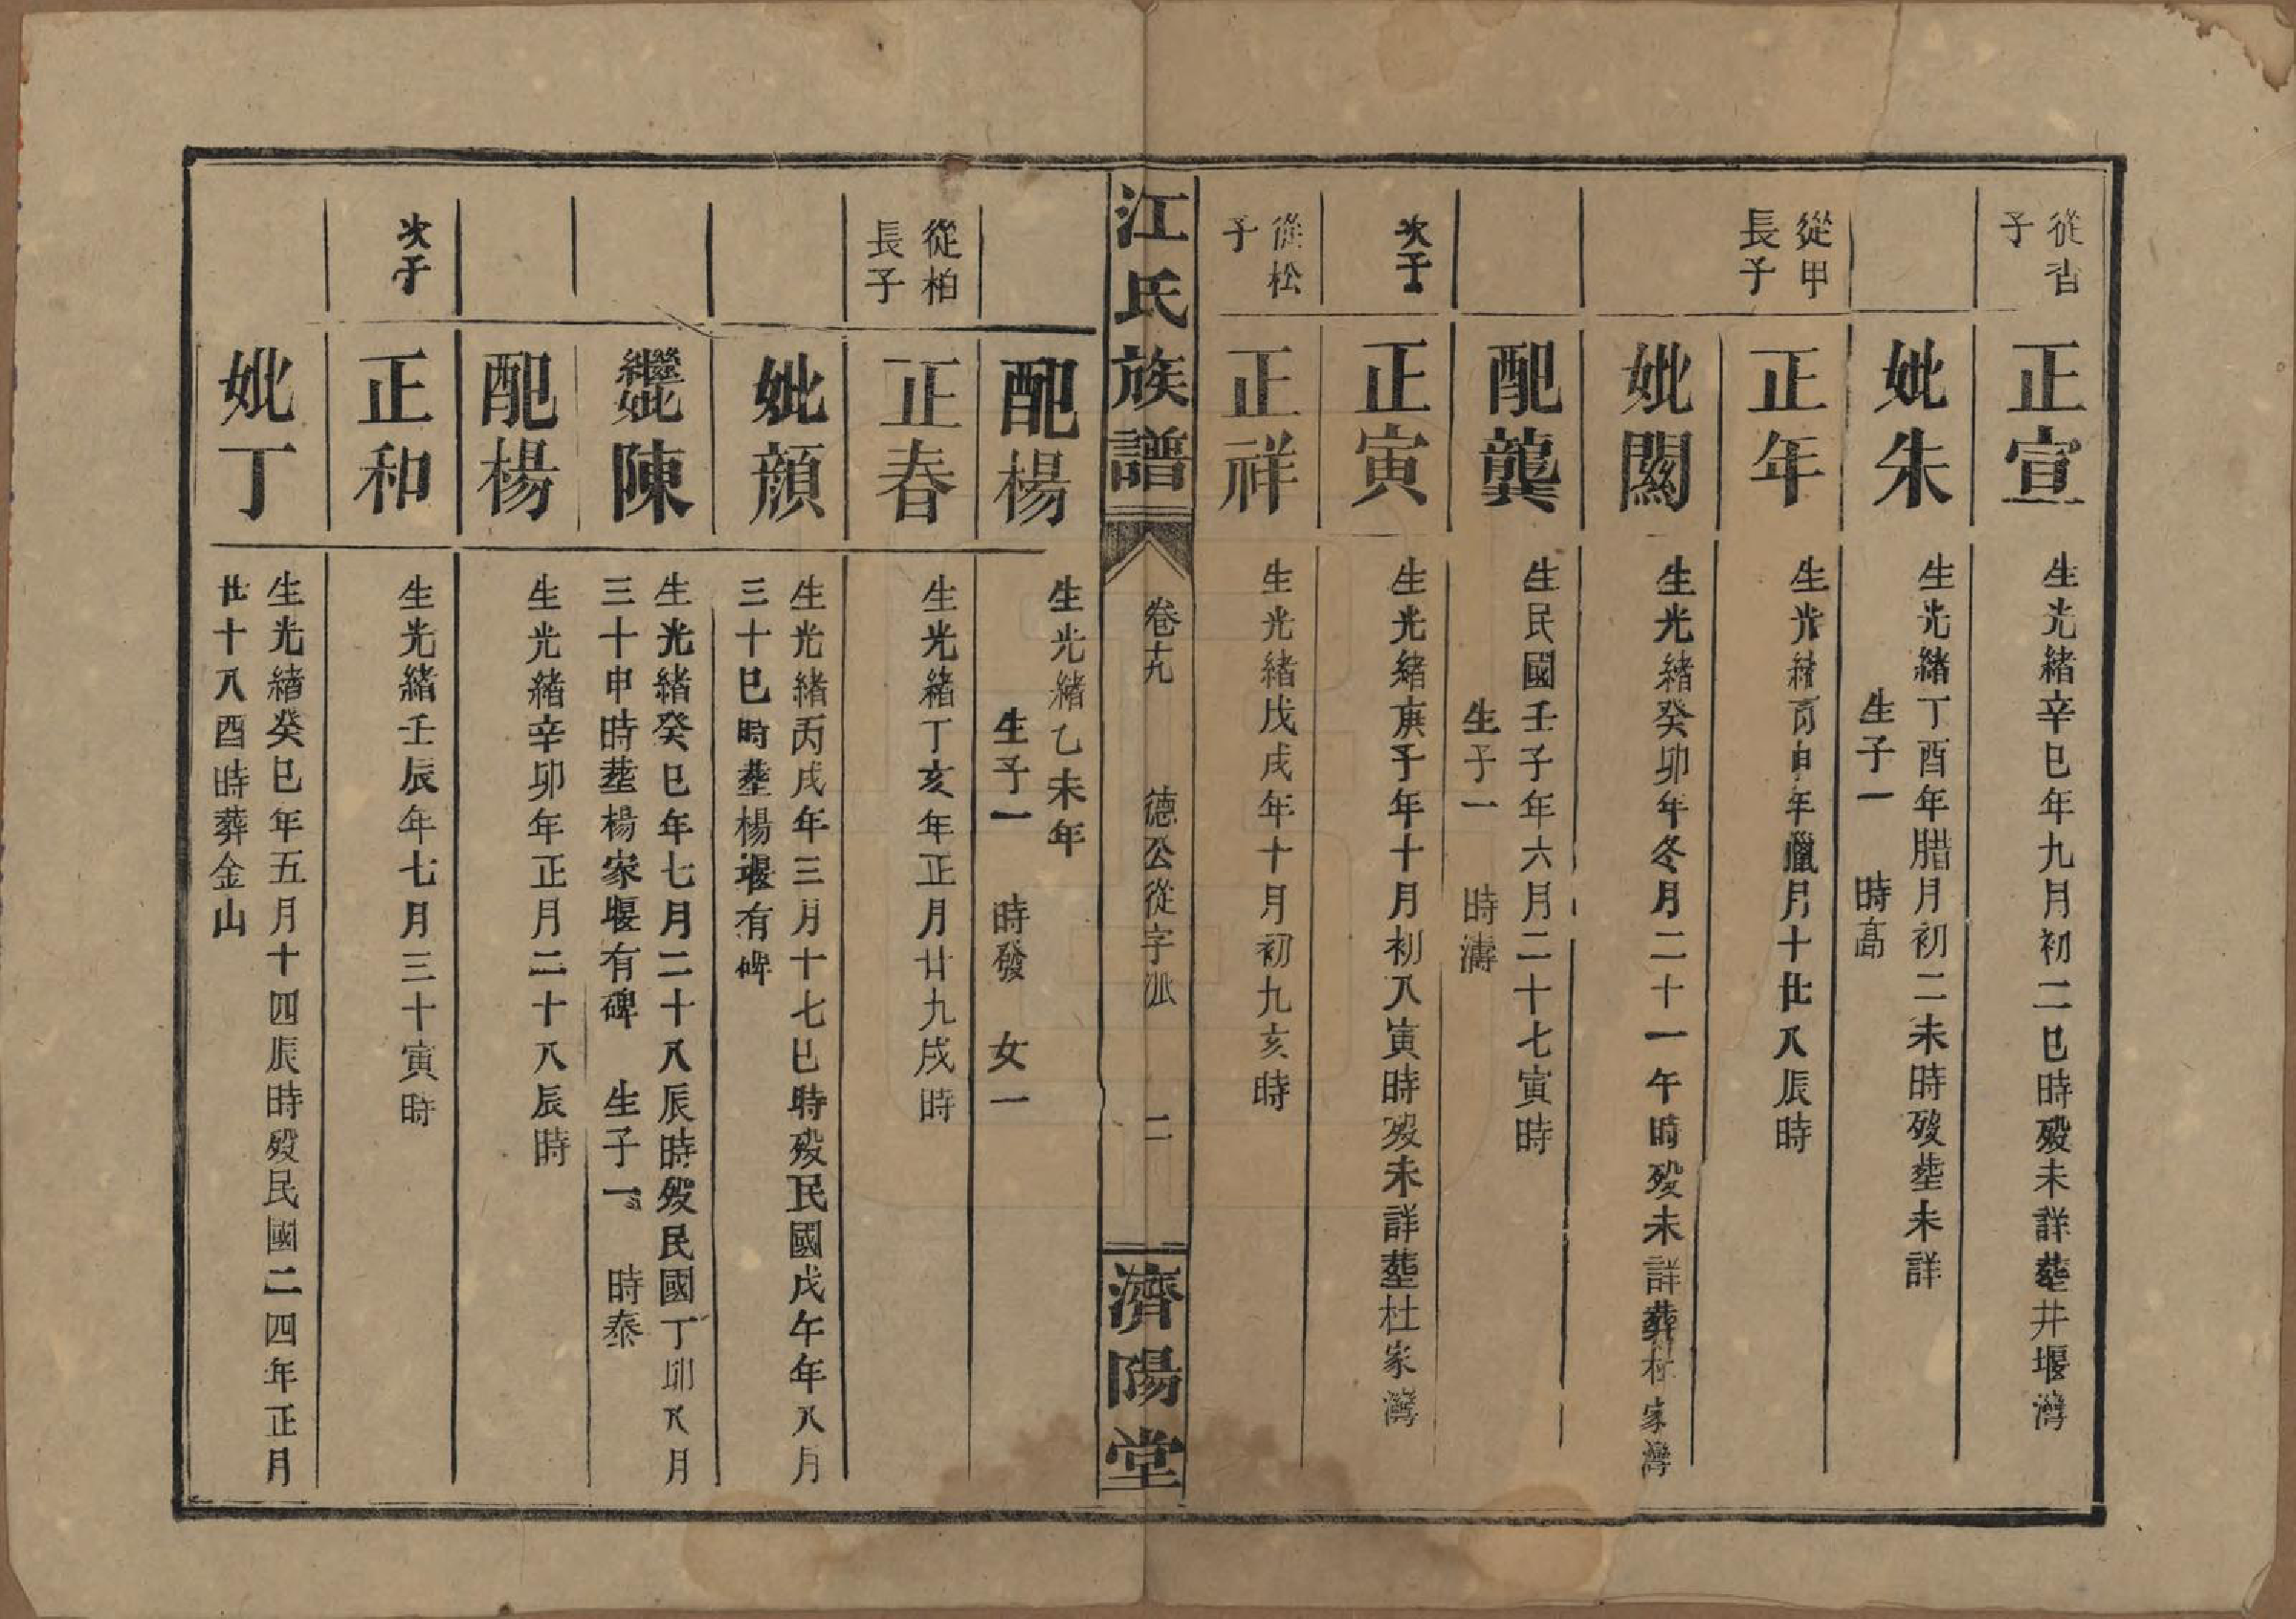 從旾子
正宣
生光緒辛巳年九月初二巳時殁未詳塟井堰灣
妣朱
生光緒丁酉年腊月初二未時殁塟未詳
生子一　時高
從甲長子
正年
生光緒丙申年臘月十廿八辰時
妣闕
生光緒癸卯年冬月二十一午時殁未詳葬杜家灣
配龔
生民國壬子年六月二十七寅時
生子一　時濤
次子
正寅
生光緒庚子年十月初八寅時殁未詳塟杜家灣
從松子
正祥
生光緒戊戌年十月初九亥時
江氏族譜
卷十九　德公從字派　二
濟陽堂
配楊
生光緒乙未年
生子一　時發　女一
從柏長子
正春
生光緒丁亥年正月廿九戌時
妣顔
生光緒丙戌年三月十七巳時殁民國戊午年八月
三十巳時塟楊堰有碑
繼妣陳
生光緒癸巳年七月二十八辰時殁民國丁卯八月
三十申時塟楊家堰有碑　生子一　時泰
配楊
生光緒辛卯年正月二十八辰時
次子
正和
生光緒壬辰年七月三十寅時
妣丁
生光緒癸巳年五月十四辰時殁民國二四年正月
廿十八酉時葬金山